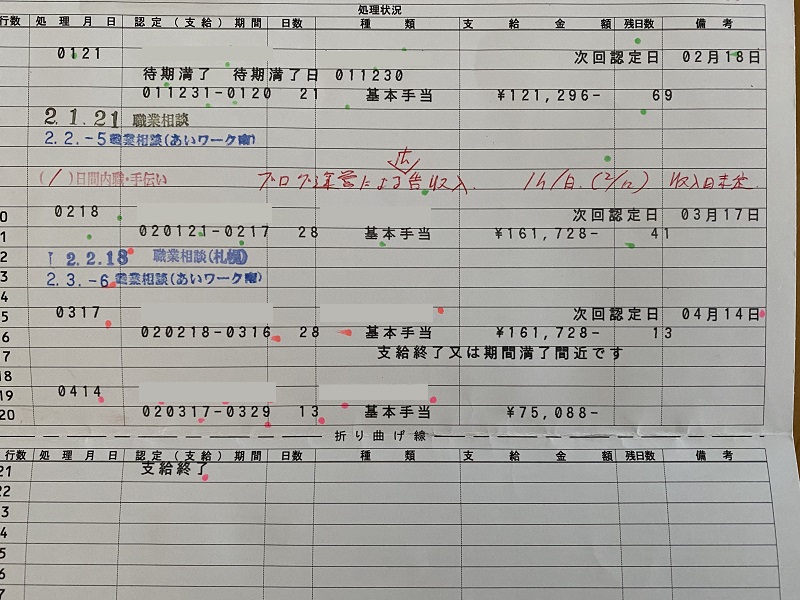 処理状況
行数 処理月日 認定(支給)期間 日数 種類 支給金額 残日数 備考
0121 次回認定日 02月18日
待期満了 待期満了日 011230
011231-0120 21 基本手当 ¥121,296- 69
2.1.21 職業相談
2.2.-5 職業相談(あいワーク南)
広
(/)日間内職・手伝い ブログ運営による告収入. 1h/日.(2/12) 収入日未定.
0 0218 次回認定日 03月17日
1 020121-0217 28 基本手当 ¥161,728- 41
2 2.2.18 職業相談(札幌)
3 2.3.-6 職業相談(あいワーク南)
4
5 0317 次回認定日 04月14日
6 020218-0316 28 基本手当 ¥161,728- 13
7 支給終了又は期間満了間近です
18
19 0414
20 020317-0329 13 基本手当 ¥75,088-
折り曲げ線
行数 処理月日 認定(支給)期間 日数 種類 支給金額 残日数 備考
21 支給終了
22
23
4
5
6
7